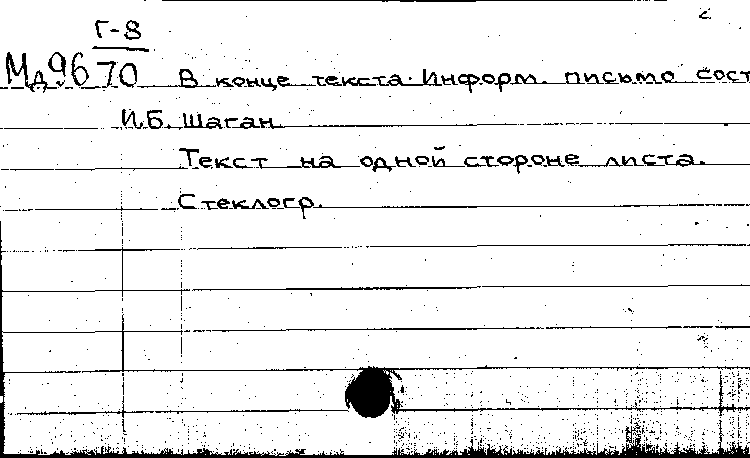 Г-8
Мд96 70 В конце текста: Информ. письмо сост
И.Б. Шаган.
Текст на одной стороне листа.
Стеклогр.